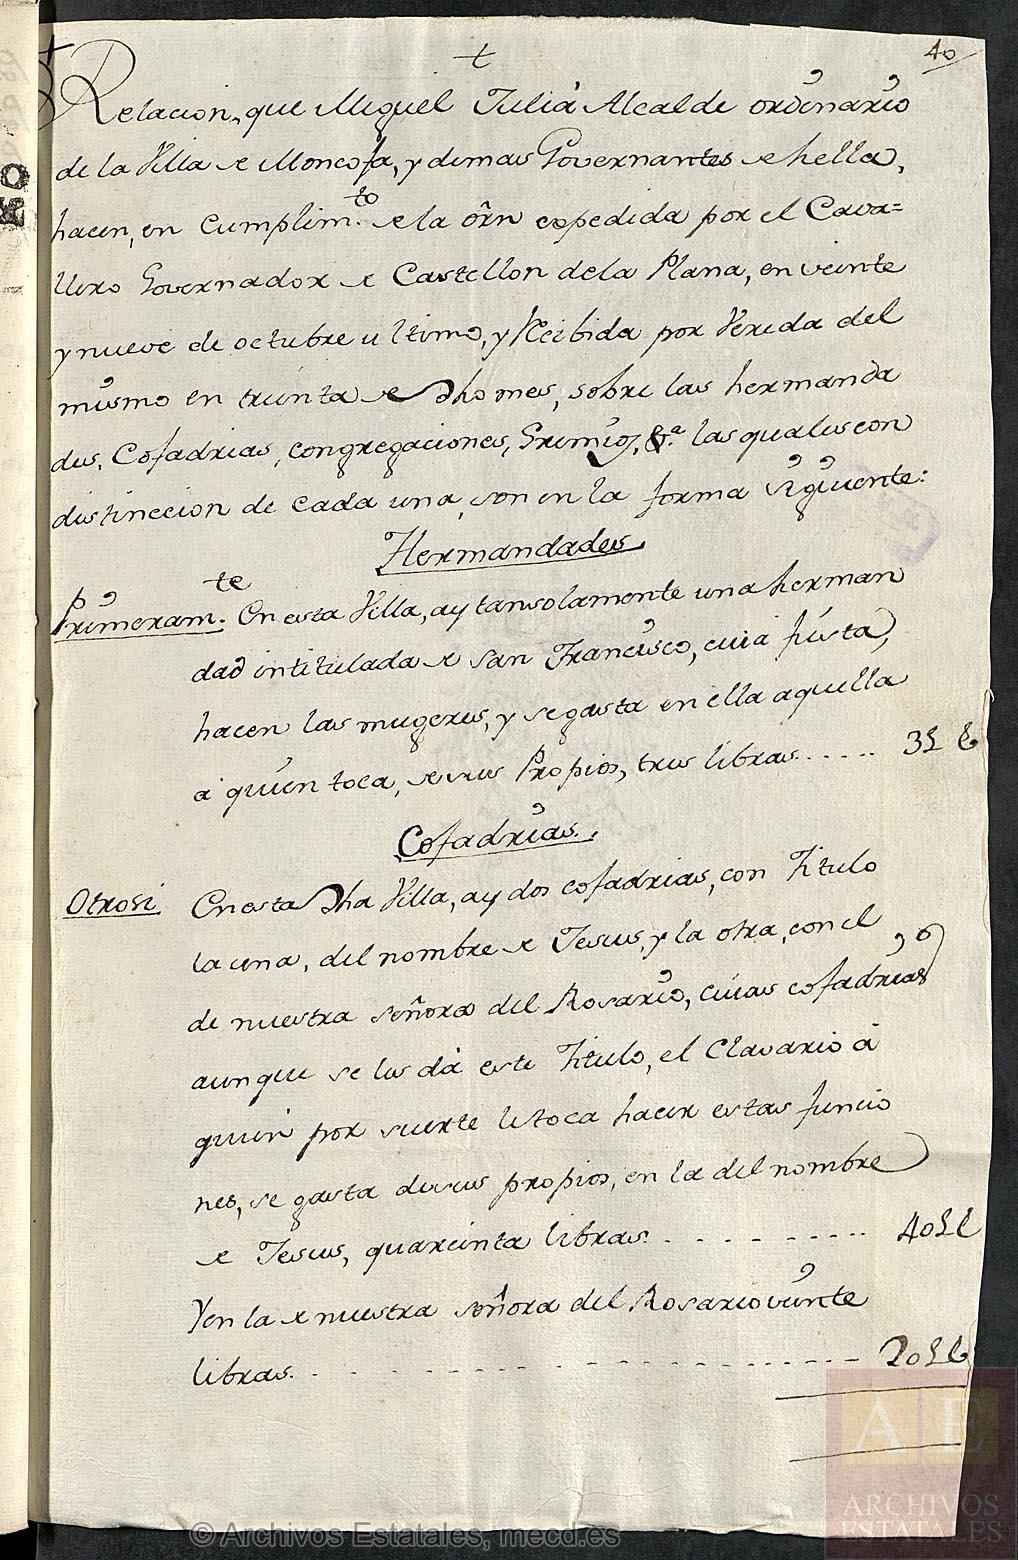 40
+
Relacion, que Miguel Juliá Alcalde ordinario
de la Villa de Moncofa, y demas Governantes de hella,
hacen, en Cumplim.to de la ôrn expedida por el Cava=
llero Governador de Castellon dela Plana, en veinte
y nueve de octubre ultimo, y Recibida por Vereda del
mismo en treinta de dho mes, sobre las hermanda
des, Cofadrias, congregaciones, Gremios, &.a las quales con
distinccion de cada una, son en la forma siguiente:
Hermandades
Primeram.te En esta Villa, ay tansolamente una herman
dad intitulada de san Francisco, cuia fiesta,
hacen las mugeres, y se gasta en ella aquella
á quien toca, de sus Propios, tres libras..... 3L
Cofadrias.
Otrosi En esta dha Villa, ay dos cofadrias, con Titulo
la una, del nombre de Jesus, y la otra, con el
de nuestra señora del Rosario, cuias cofadrias
aunque se les dá este Titulo, el Clavario á
quien por suerte le toca hacer estas funcio
nes, se gasta desus propios, en la del nombre
de Jesus, quareinta libras. . . . . . . . . . 40L
Yen la de nuestra señora del Rosario veinte
libras. . . . . . . . . . . . . . . . . . . . 20L
AE
ARCHIVOS
ESTATALES
© Archivos Estatales, mecd.es